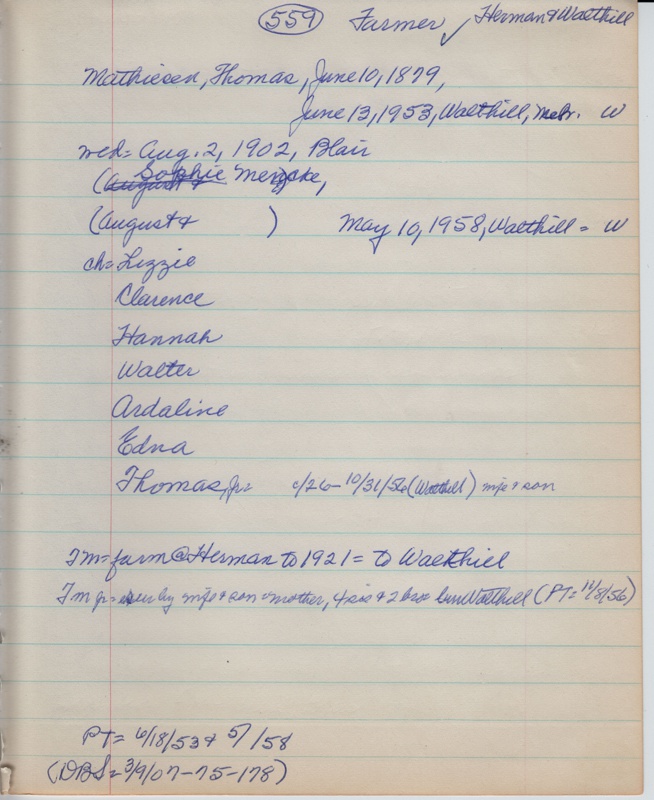 559 Farmer ✓ Herman & Walthill
Mathiesen, Thomas, June 10, 1879,
June 13, 1953, Walthill, Nebr. W
wed = Aug. 2, 1902, Blair
(August & Sophie
(August & ) May 10, 1958, Walthill = W
ch = Lizzie
Clarence
Hannah
Walter
Ardaline
Edna
Thomas, Jr = c/26 - 10/31/56 (Walthill) wife & son
TM = farm @ Herman to 1921 = to Walthill
TM jr = surv by wife & son = mother, 4 sis & 2 bros bur Walthill (PT = 11/8/56)
PT = 6/18/53 & 5/ /58
(DBS = 3/9/07-75-178)